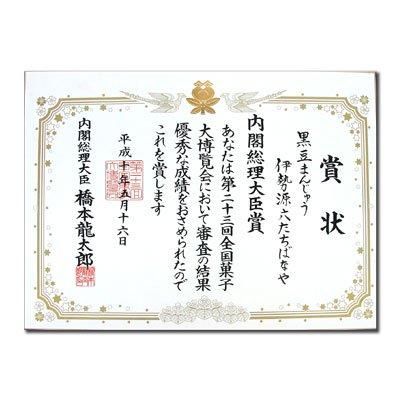 賞状
黒豆まんじゅう
伊勢源六たちばなや
内閣総理大臣賞
あなたは第二十三回全国菓子
大博覧会において審査の結果
優秀な成績をおさめられたので
これを賞します
平成十年五月十六日
内閣総理大臣 橋本龍太郎